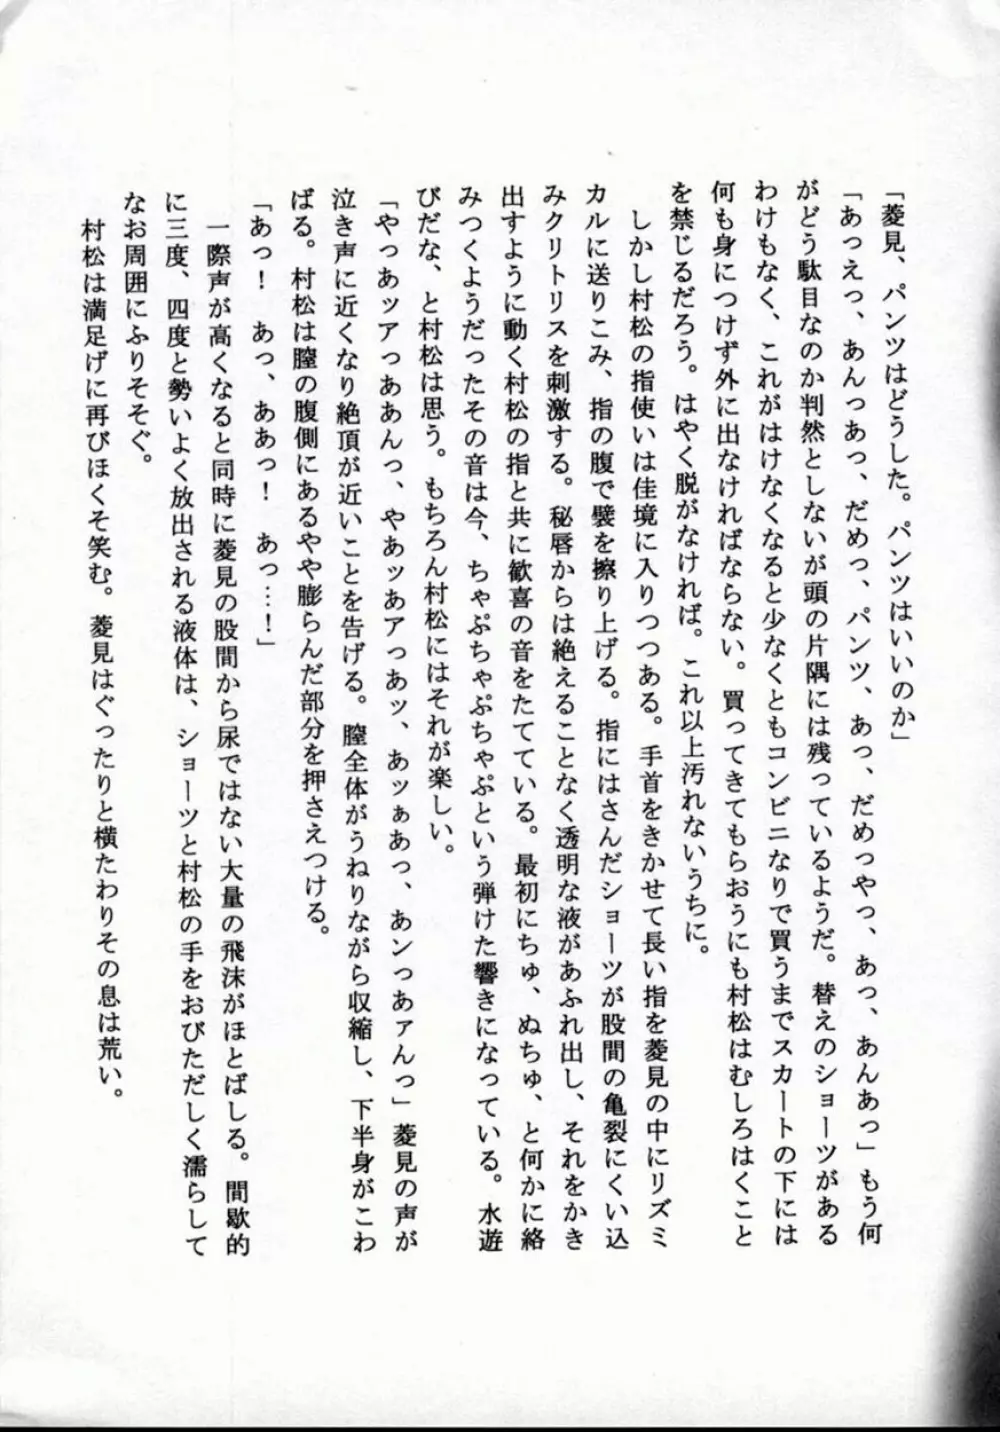 「菱見、パンツはどうした。パンツはいいのか」
「あっえっ、あんっあっ、だめっ、パンツ、あっ、だめっやっ、あっ、あんあっ」もう何
がどう駄目なのか判然としないが頭の片隅には残っているようだ。替えのショーツがある
わけもなく、これがはけなくなると少なくともコンビニなりで買うまでスカートの下には
何も身につけず外に出なければならない。買ってきてもらおうにも村松はむしろはくこと
を禁じるだろう。はやく脱がなければ。これ以上汚れないうちに。
しかし村松の指使いは佳境に入りつつある。手首をきかせて長い指を菱見の中にリズミ
カルに送りこみ、指の腹で襞を擦り上げる。指にはさんだショーツが股間の亀裂にくい込
みクリトリスを刺激する。秘唇からは絶えることなく透明な液があふれ出し、それをかき
出すように動く村松の指と共に歓喜の音をたてている。最初にちゅ、ぬちゅ、と何かに絡
みつくようだったその音は今、ちゃぷちゃぷちゃぷという弾けた響きになっている。水遊
びだな、と村松は思う。もちろん村松にはそれが楽しい。
「やっあッアっああんっ、やあッあアっあッ、あッぁあっ、あンっあァんっ」菱見の声が
泣き声に近くなり絶頂が近いことを告げる。膣全体がうねりながら収縮し、下半身がこわ
ばる。村松は膣の腹側にあるやや膨らんだ部分を押さえつける。
「あっ！　あっ、ああっ！　あっ…！」
一際声が高くなると同時に菱見の股間から尿ではない大量の飛沫がほとばしる。間歇的
に三度、四度と勢いよく放出される液体は、ショーツと村松の手をおびただしく濡らして
なお周囲にふりそそぐ。
村松は満足げに再びほくそ笑む。菱見はぐったりと横たわりその息は荒い。